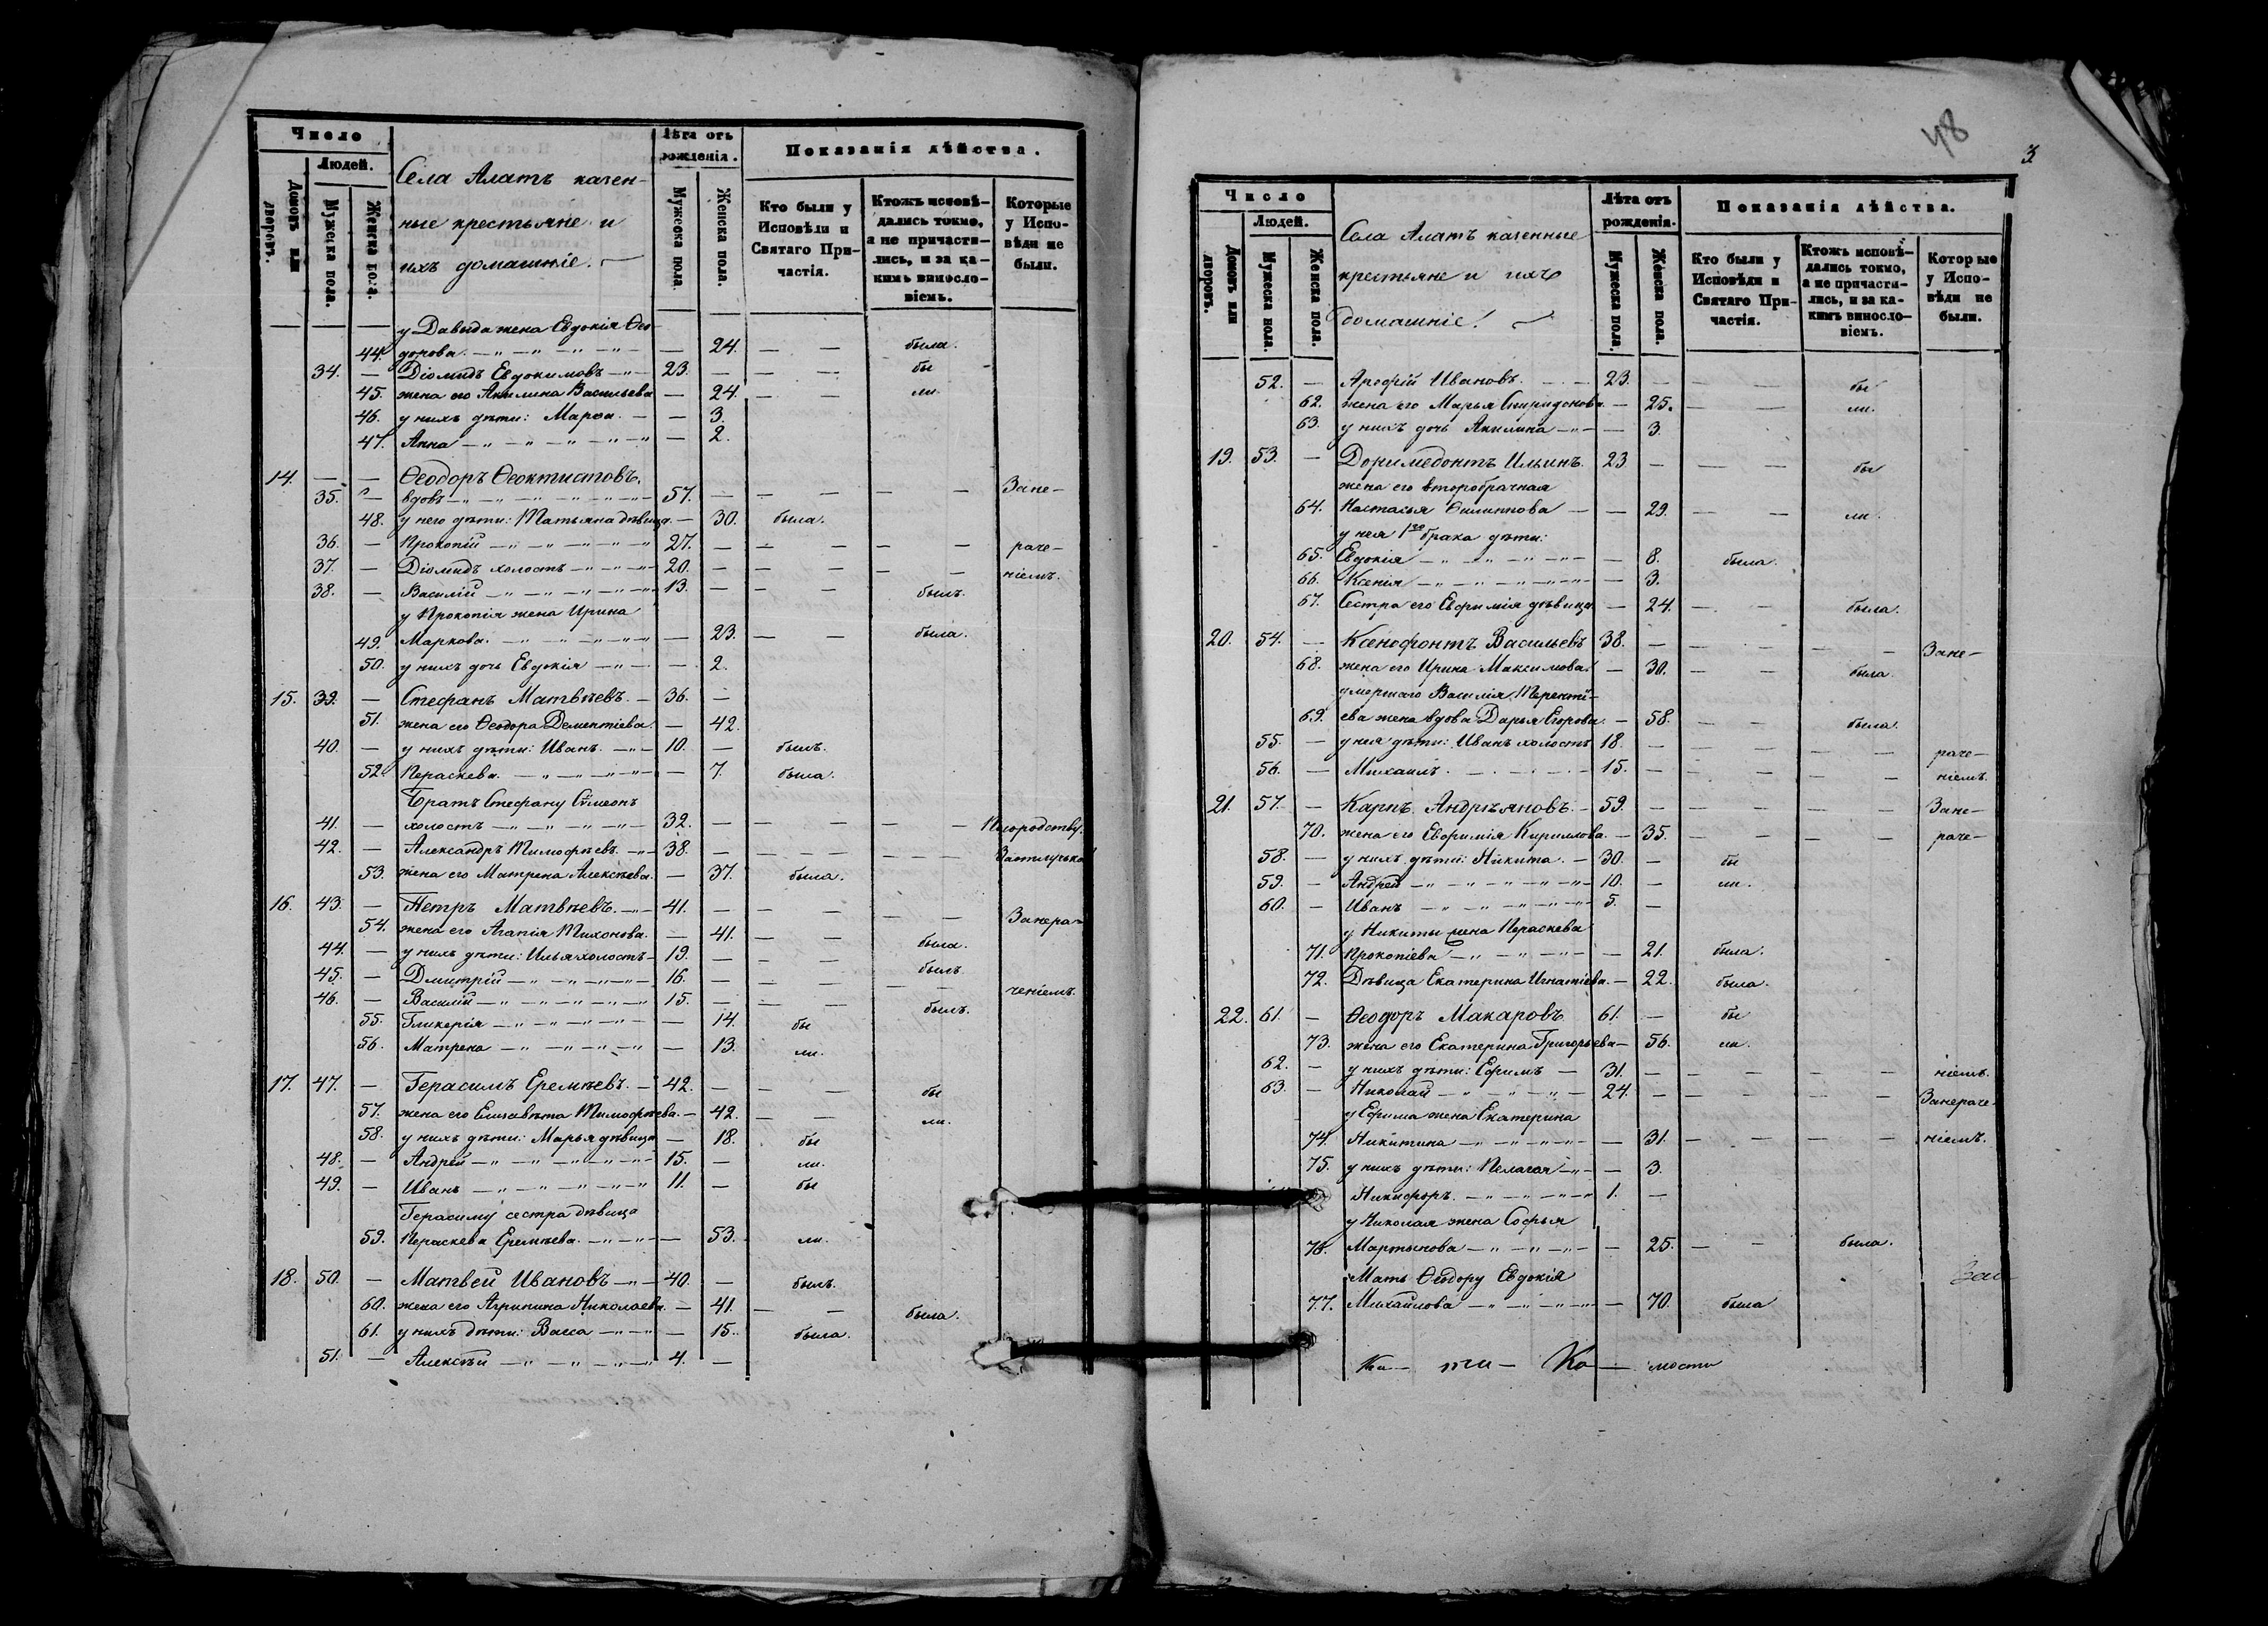 Число
Людей.
Домовъ или дворовъ.
Мужеска пола.
Женска пола.
Села Алатъ казен-
ные крестьяне и
ихъ домашніе.
Лѣта отъ рожденія.
Мужеска пола.
Женска пола.
Показанія дѣйства.
Кто были у Исповѣди и Святаго При-частія.
Ктожъ исповѣ-дались токмо, а не причасти-лись, и за ка-кимъ виносло-віемъ.
Которые у Испо-вѣди не были.
у Давыда жена Евдокія Ѳео-
44. дорова. — 24. — — была.
34. — Діомидъ Евдокимовъ — 23. — — — бы
45. жена его Акилина Васильева — 24. — — ли.
46. у нихъ дѣти: Марѳа. — — 3.
47. Анна — 2.
14. — — Ѳеодоръ Ѳеоктистовъ,
35. — вдовъ — 57. — — — — Зане-
48. у него дѣти: Татьяна дѣвица. — 30. была.
36. — Прокопій — 27. — — — — — раче-
37. — Діомидъ холостъ — 20. — — — — — ніемъ.
38. — Василій — 13. — — — былъ.
у Прокопія жена Ирина
49. Маркова. — 23. — — была.
50. у нихъ дочь Евдокія — — 2.
15. 39. — Стефанъ Матвѣевъ. — 36. —
51. жена его Ѳеодора Дементіева. — 42.
40. — у нихъ дѣти: Иванъ. — 10. — былъ.
52. Параскева. — 7. была.
Братъ Стефану Сѵмеонъ
41. — холостъ — 32. — — — — —
42. — Александръ Тимоѳѣевъ. — 38. — — — — —
53. жена его Матрена Алексѣева. — 37. была.
16. 43. — Петръ Матвѣевъ. — 41. — — — — — Занера-
54. жена его Агапія Тихонова. — 41. — — была.
44. — у нихъ дѣти: Илья холостъ — 19. — — — былъ
45. — Дмитрій — 16. — — — — — ченіемъ.
46. — Василій — 15. — — — былъ.
55. Гликерія — 14. бы
56. Матрена — 13. ли.
17. 47. — Герасимъ Еремѣевъ. — 42. — — — бы
57. жена его Елисавета Тимоѳѣева. — 42. — — ли.
58. у нихъ дѣти: Марья дѣвица — 18. бы
48. — Андрей — 15. — ли.
49. — Иванъ — 11. — бы
Герасиму сестра дѣвица
59. Параскева Еремѣева. — 53. ли.
18. 50. — Матвей Ивановъ — 40. — былъ.
60. жена его Агрипина Николаева. — 41. — — была.
61. у нихъ дѣти: Васса — 15. была.
51. — Алексѣй — 4. —
48
3
Число
Людей.
Домовъ или дворовъ.
Мужеска пола.
Женска пола.
Села Алатъ казенные
крестьяне и ихъ
домашніе.
Лѣта отъ рожденія.
Мужеска пола.
Женска пола.
Показанія дѣйства.
Кто были у Исповѣди и Святаго При-частія.
Ктожъ исповѣ-дались токмо, а не причасти-лись, и за ка-кимъ виносло-віемъ.
Которые у Испо-вѣди не были.
52. — Ареѳій Ивановъ. — 23. — — — бы
62. жена его Марья Спиридонова. — 25. — — ли.
63. у нихъ дочь Акилина — — 3.
19. 53. — Доримедонтъ Ильинъ. 23. — — — бы
жена его второбрачная
64. Настасья Филиппова — — 29. — — ли.
у нея 1го брака дѣти:
65. Евдокія — 8. была.
66. Ксенія — 3.
67. Сестра его Евфимія дѣвица — 24. — — была.
20. 54. — Ксенофонтъ Васильевъ 38. — — — — — Зане-
68. жена его Ирина Максимова. — 30. — — была.
умершаго Василія Теренті-
69. ева жена вдова Дарья Егорова. — 58. — — была.
55. — у нея дѣти: Иванъ холостъ 18. — — — — — раче-
56. — Михаилъ. — 15. — — — — — ніемъ.
21. 57. — Карпъ Андрѣяновъ. — 59. — — — — — Зане-
70. жена его Евфимія Кирилова. — 35. — — — — раче-
58. — у нихъ дѣти: Никита. — 30. — бы
59. — Андрей — 10. — ли.
60. — Иванъ — 5. —
у Никиты жена Параскева
71. Прокопіева — 21. была.
72. Дѣвица Екатерина Игнатіева. — 22. была.
22. 61. — Ѳеодоръ Макаровъ 61. — бы
73. жена его Екатерина Григорьева — 56. ли.
62. — у нихъ дѣти: Ефимъ — 31. — — — — — ніемъ.
63. — Николай — 24. — — — — — Занераче-
у Ефима жена Екатерина
74. Никитина — 31. — — — — ніемъ.
75. у нихъ дѣти: Пелагея — 3.
Никифоръ. — 1. —
у Николая жена Софья
76. Мартынова — 25. — — была.
Мать Ѳеодору Евдокія
77. Михайлова — 70. была